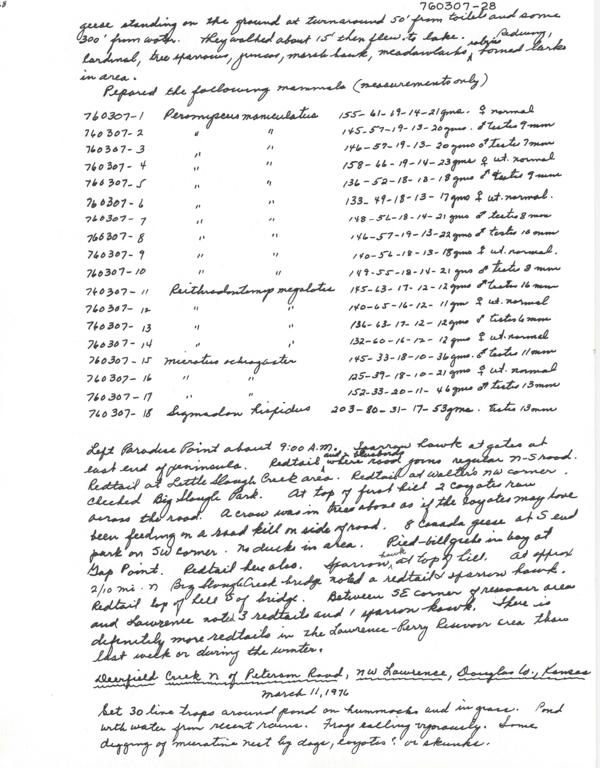 760307-28
geese standing on the ground at turnaround 50' from toilets and some
300' from water. They walked about 15' then flew to lake. robins, Redwing,
Cardinal, tree sparrows, juncos, marsh hawk, meadowlarks, horned larks
in area.
Prepared the following mammals (measurements only)
760307-1 Peromyscus maniculatus 155-61-19-14-21gms. ♀ normal
760307-2 " " 145-57-19-13-20gms. ♂ testes 9mm
760307-3 " " 146-57-19-13-20gms ♂ testes 7mm
760307-4 " " 158-66-19-14-23gms ♀ ut. normal
760307-5 " " 136-52-18-13-18gms ♂ testes 9mm
760307-6 " " 133-49-18-13-17gms ♀ ut. normal.
760307-7 " " 148-56-18-14-21gms ♂ testes 8mm
760307-8 " " 146-57-19-13-22gms ♂ testes 10mm
760307-9 " " 140-56-18-13-18gms ♀ ut. normal.
760307-10 " " 149-55-18-14-21gms ♂ testes 8mm
760307-11 Reithrodontomys megalotis 145-63-17-12-12gms ♂ testes 16mm
760307-12 " " 140-65-16-12-11gm ♀ ut. normal
760307-13 " " 136-63-17-12-12gms ♂ testes 6mm
760307-14 " " 132-60-16-12-12gms ♀ ut. normal
760307-15 Microtus ochrogaster 145-33-18-10-36gms. ♂ testes 11mm
760307-16 " " 125-39-18-10-21gms ♀ ut. normal
760307-17 " " 152-33-20-11-46gms ♂ testes 13mm
760307-18 Sigmodon hispidus 203-80-31-17-53gms. testes 13mm
Left Paradise Point about 9:00 A.M. Sparrow hawk at gates at
east end of peninsula. Redtail and 2 bluebirds where road joins regular N-S road.
Redtail at Little Slough Creek area. Redtail at Walter's NW corner.
Checked Big Slough Park. At top of first hill 2 coyotes ran
across the road. A crow was in trees above as if the coyotes may have
been feeding on a road kill on side of road. 8 Canada geese at S end
park on SW corner. No ducks in area. Pied-bill grebe in bay at
Gap Point. Redtail here also. Sparrow hawk at top of hill. At approx
2/10 mi. N Big Slough Creek bridge noted a redtail & sparrow hawk.
Redtail top of hill S of bridge. Between SE corner of reservoir area
and Lawrence noted 3 redtails and 1 sparrow hawk. There is
definitely more redtails in the Lawrence-Perry Reservoir area than
last week or during the winter.
Deerfield Creek N of Peterson Road, NW Lawrence, Douglas Co., Kansas
March 11, 1976
Set 30 line traps around pond on hummocks and in grass. Pond
with water from recent rains. Frogs calling vigorously. Some
digging of microtine nest by dogs, coyotes? or skunks.